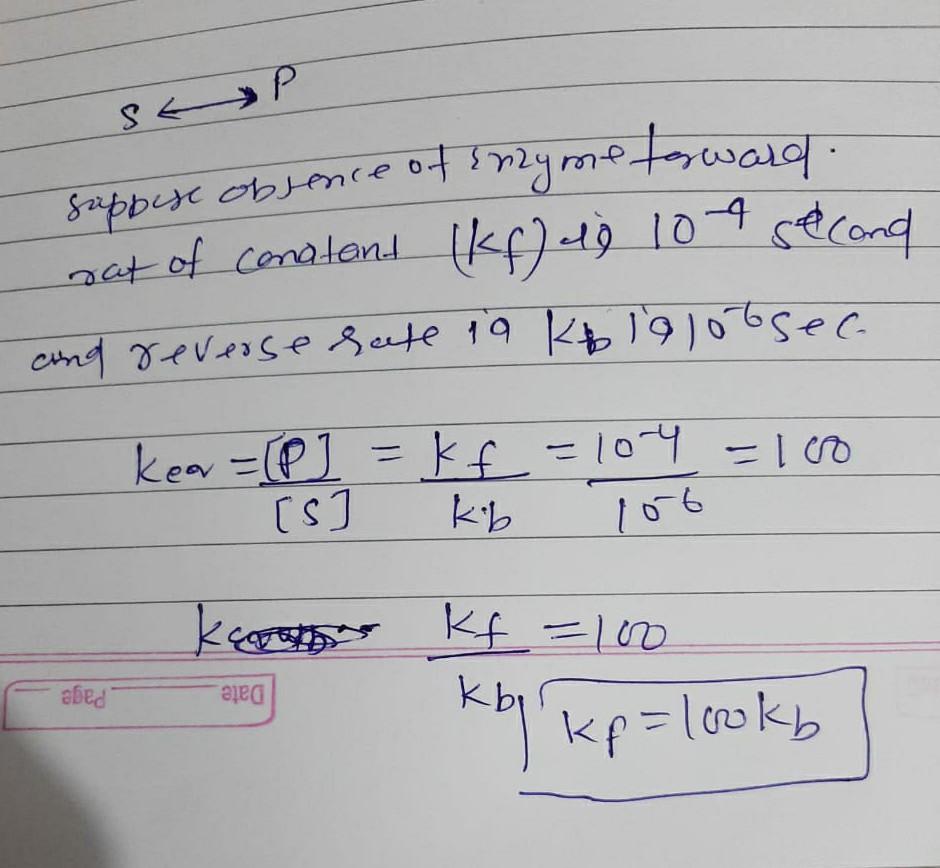 S ⟷ P
suppose absence of Enzyme forward.
rat of constant (kf) is 10⁻⁴ second
and reverse rate is kb is 10⁻⁶ sec.
keq = [P] / [S] = kf / k.b = 10⁻⁴ / 10⁻⁶ = 100
kf / kb = 100
kf = 100 kb
Date Page